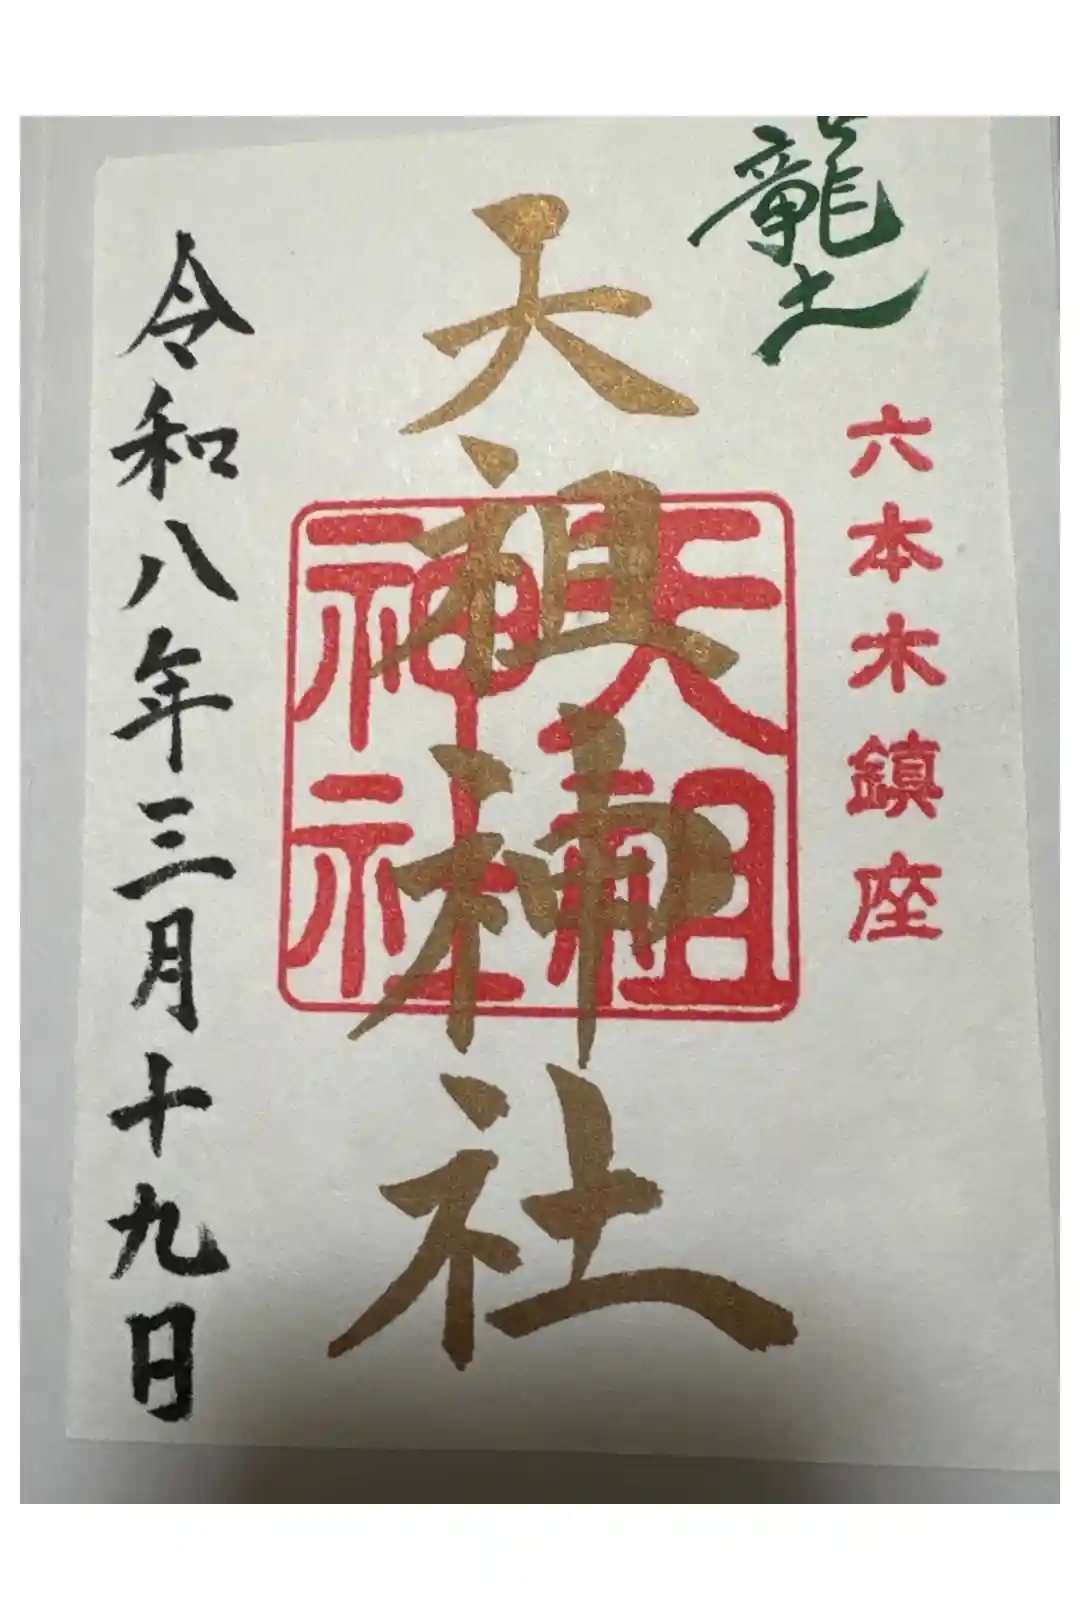 龍土
六本木鎮座
天祖神社
天祖
神社
令和八年三月十九日